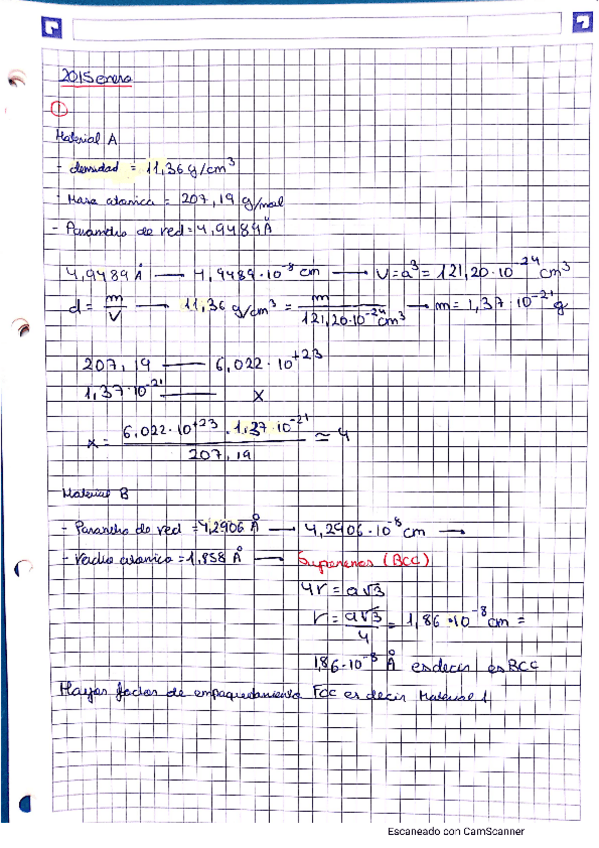 2015 enero
1
Material A
- densidad = 11,36 g/cm³
- Masa atomica = 207,19 g/mol
- Parametro de red = 4,9489 Å
4,9489 Å — 4,9489·10⁻⁸ cm → V=a³= 121,20·10⁻²⁴ cm³
d = m/V → 11,36 g/cm³ = m/121,20·10⁻²⁴ cm³ → m = 1,37·10⁻²¹ g
207,19 — 6,022·10⁺²³
1,37·10⁻²¹ — x
x = 6,022·10⁺²³ · 1,37·10⁻²¹ / 207,19 ≃ 4
Material B
- Parametro de red = 4,2906 Å → 4,2906·10⁻⁸ cm →
- radio atomico = 1,858 Å → Suponemos (BCC)
4r = a√3
r = a√3/4 = 1,86·10⁻⁸ cm =
1,86·10⁻⁸ Å es decir es BCC
Mayor factor de empaquetamiento FCC es decir Material 1
Escaneado con CamScanner